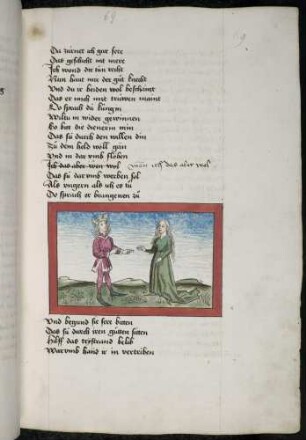 69
9
Du zúrnet ich gar sere
Das geschicht nit mere
Ich wond die tůn recht
Nun haut mir der gůt knecht
Und du ir beiden wol bescheint
Das er mich mit trúwen maint
Do sprach die kúngin
Wiltu in wider gewinnen
So bit die dienerin min
Das sú durch den willen din
Zů dem held well gan
Und in dar umb flehen
Ich das aber wer wol
Das sú dar umb werben sol
Als ungern als ich es tů
Do sprach er brangenen zů
Und begund sie sere bitten
Das sú durch iren gůten sitten
Hilff das trÿstrand belib
Warumb haud ir in vertriben